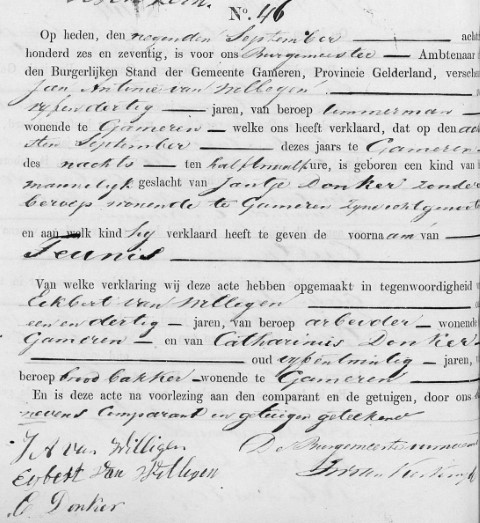 No. 46
Op heden, den negenden September acht
honderd zes en zeventig, is voor ons Burgemeester Ambtenaar
den Burgerlijken Stand der Gemeente Gameren, Provincie Gelderland, versche
Jan Antonie van Willegen
vyfendertig jaren, van beroep timmerman
wonende te Gameren welke ons heeft verklaard, dat op den ach
sten September dezes jaars te Gameren
des nachts ten half ure, is geboren een kind van
mannelyk geslacht van Jantje Donker zonder
beroep wonende te Gameren zyne echtgenoot
en aan welk kind hy verklaard heeft te geven de voornaam van
Teunis
Van welke verklaring wij deze acte hebben opgemaakt in tegenwoordigheid
Eckbert van Willegen
eenendertig jaren, van beroep arbeider wonende
Gameren en van Catharinus Donker
oud jaren,
beroep broodbakker wonende te Gameren
En is deze acte na voorlezing aan den comparant en de getuigen, door ons
nevens Comparant en getuigen geteekend
J A van Willigen
De Burgemeester
Eybert van Willegen
C Donker